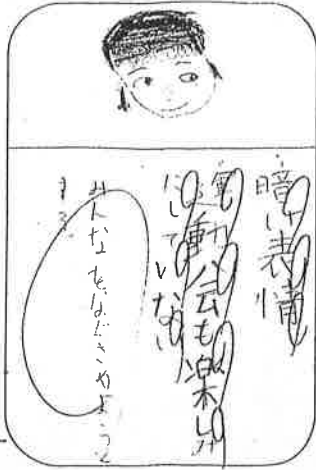 暗い表情
運動会も楽しみ
にしていない
みんなをはげまそうと
する。